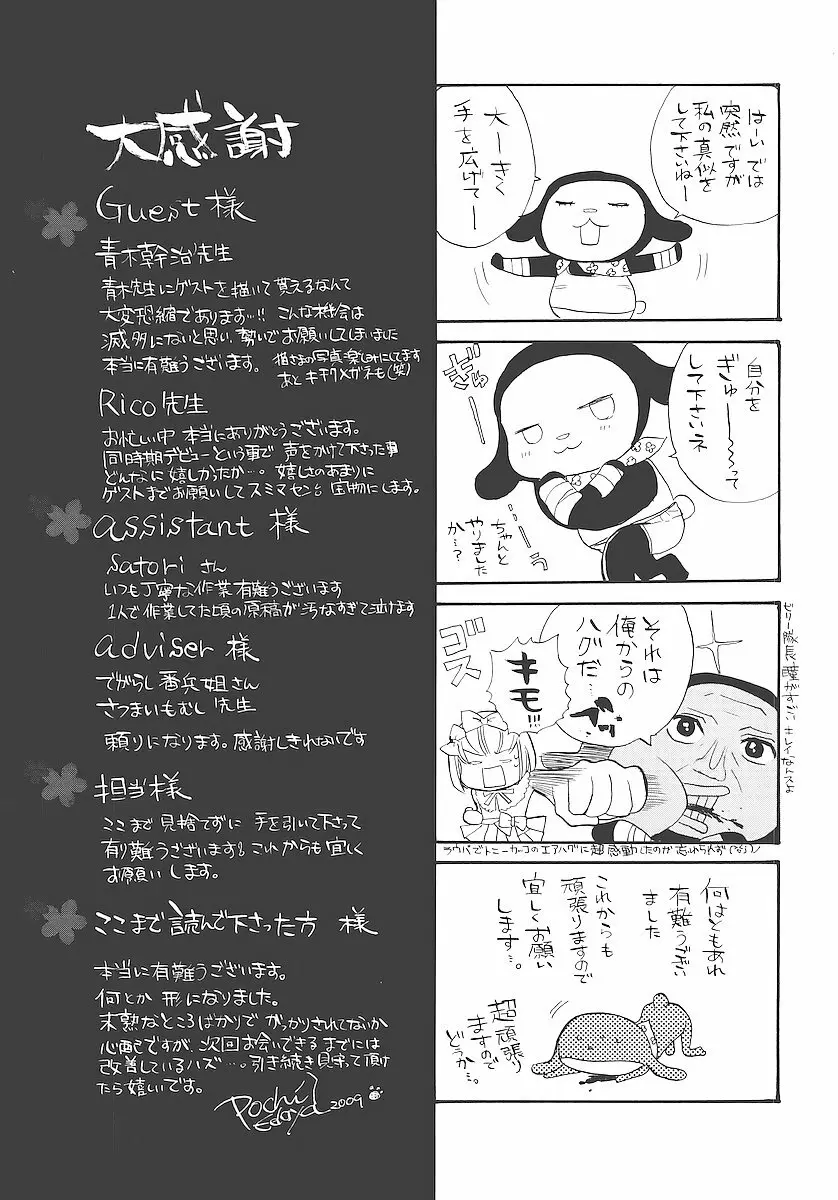 大感謝
Guest 様
青木幹治先生
青木先生にゲストを描いて貰えるなんて
大変恐縮であります…!! こんな機会は
滅多にないと思い、勢いでお願いしてしまいました
本当に有難うございます。
猫さまの写真楽しみにしてます
あと キチク×ガネも(笑)
Rico先生
お忙しい中 本当にありがとうございます。
同時期デビューという事で 声をかけて下さった事
どんなに嬉しかったか…。嬉しさのあまりに
ゲストまでお願いしてスミマセン。宝物にします。
assistant 様
satori さん
いつも丁寧な作業有難うございます
1人で作業してた頃の原稿が汚なすぎて泣けます
adviser 様
でがらし番兵姐さん
さつまいもむし先生
頼りになります。感謝しきれないです
担当様
ここまで見捨てずに 手を引いて下さって
有り難うございます。これからも宜しく
お願いします。
ここまで読んで下さった方 様
本当に有難うございます。
何とか形になりました。
未熟なところばかりで がっかりされてないか
心配ですが、次回お会いできるまでには
改善しているハズ…。引き続き見守って頂け
たら嬉しいです。
Pochi Edoya 2009
はーい では
突然ですが
私の真似を
して下さいねー
大ーきく
手を広げてー
自分を
ぎゅー〜〜って
して下さいネ
ぎゅっ
…ぎゅう
ちゃんと
やりました
か…?
それは
俺からの
ハグだ…
キモ!!!
ゴスゴス
ビリー隊長、瞳がすごいキレイなんスよ
ラウパでトニーカーコのエアハグに超感動したのが忘れられず(なう)
何はともあれ
有難うござい
ました
これからも
頑張りますので
宜しくお願い
します…。
超頑張り
ますので
どうか…。